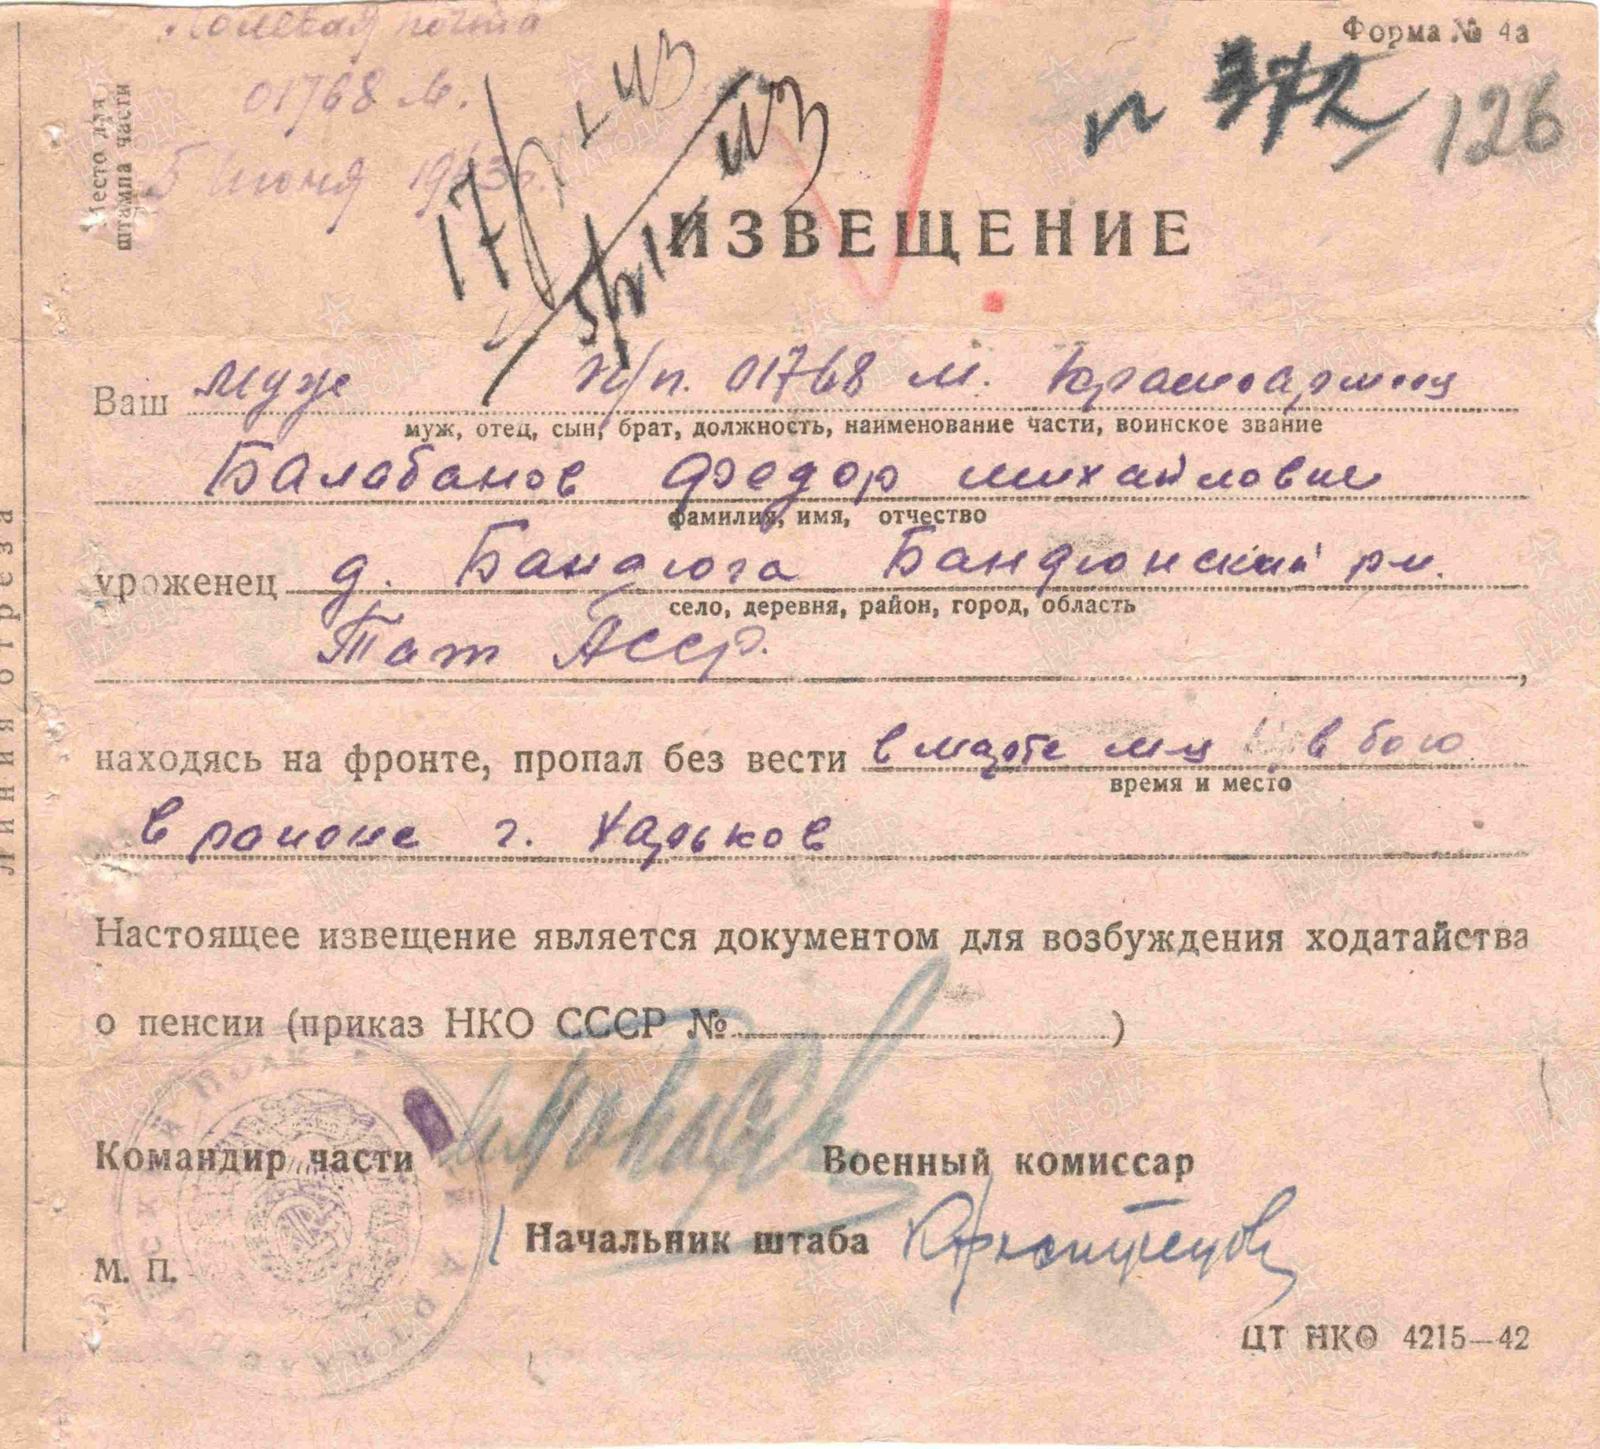 Полевая почта
01768 м.
5 июня 1943 г.
Место для
штампа части
Форма № 4а
п 372
126
ИЗВЕЩЕНИЕ
Ваш муж п/п. 01768 м. Красноармеец
муж, отец, сын, брат, должность, наименование части, воинское звание
Балабанов Федор Михайлович
фамилия, имя, отчество
уроженец д. Бандюга Бандюнский рн.
село, деревня, район, город, область
Тат АССР.
находясь на фронте, пропал без вести в марте м-ц в бою
время и место
в районе г. Харьков
Настоящее извещение является документом для возбуждения ходатайства
о пенсии (приказ НКО СССР № )
Командир части
Военный комиссар
Начальник штаба
М. П.
ЦТ НКО 4215—42
Линия отреза
ПАМЯТЬ НАРОДА